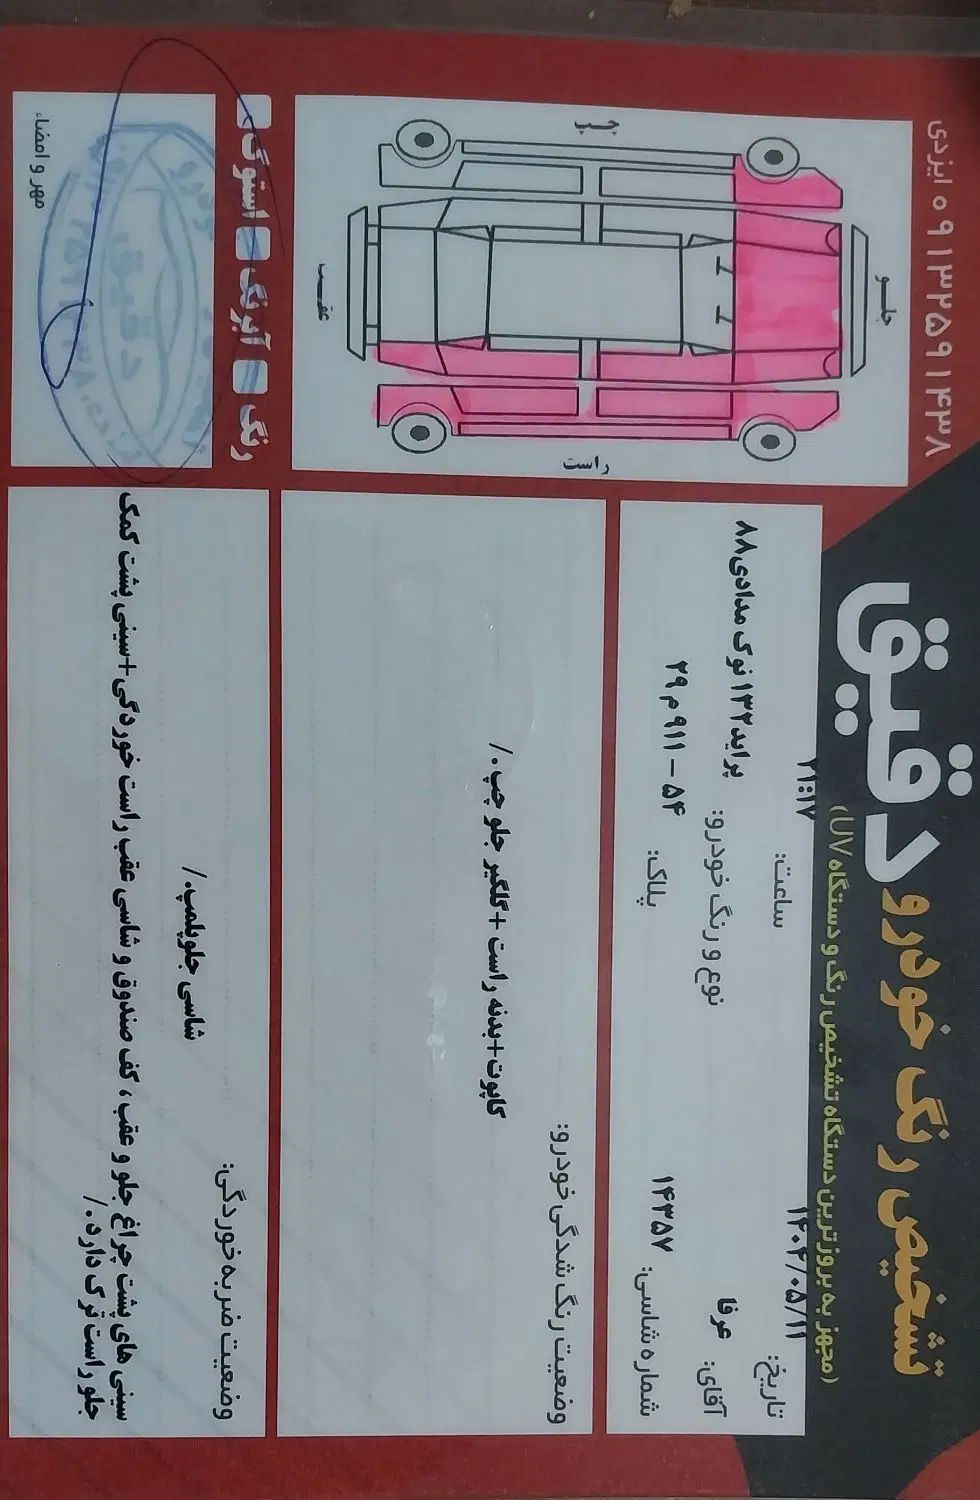 تشخیص رنگ خودرو دقیق
(مجهز به بروزترین دستگاه تشخیص رنگ و دستگاه UV)
۰۹۱۳۲۵۹۱۴۳۸ ایزدی
تاریخ: ۱۴۰۴/۰۵/۱۱
ساعت: ۲۱:۱۷
آقای: عرفا
نوع و رنگ خودرو: پراید۱۳۲ نوک مدادی۸۸
شماره شاسی: ۱۴۳۵۷
پلاک: ۵۴ - ۹۱۱م۲۹
جلــو
چــپ
راست
عقــب
وضعیت رنگ شدگی خودرو:
کاپوت+بدنه راست +گلگیر جلو چپ./
وضعیت ضربه خوردگی:
شاسی جلوپلمپ./
سینی های پشت چراغ جلو و عقب، کف صندوق و شاسی عقب راست خوردگی+سینی پشت کمک
جلو راست ترک دارد./
رنگ
آبرنگ
استوک
مهر و امضاء
دقیق